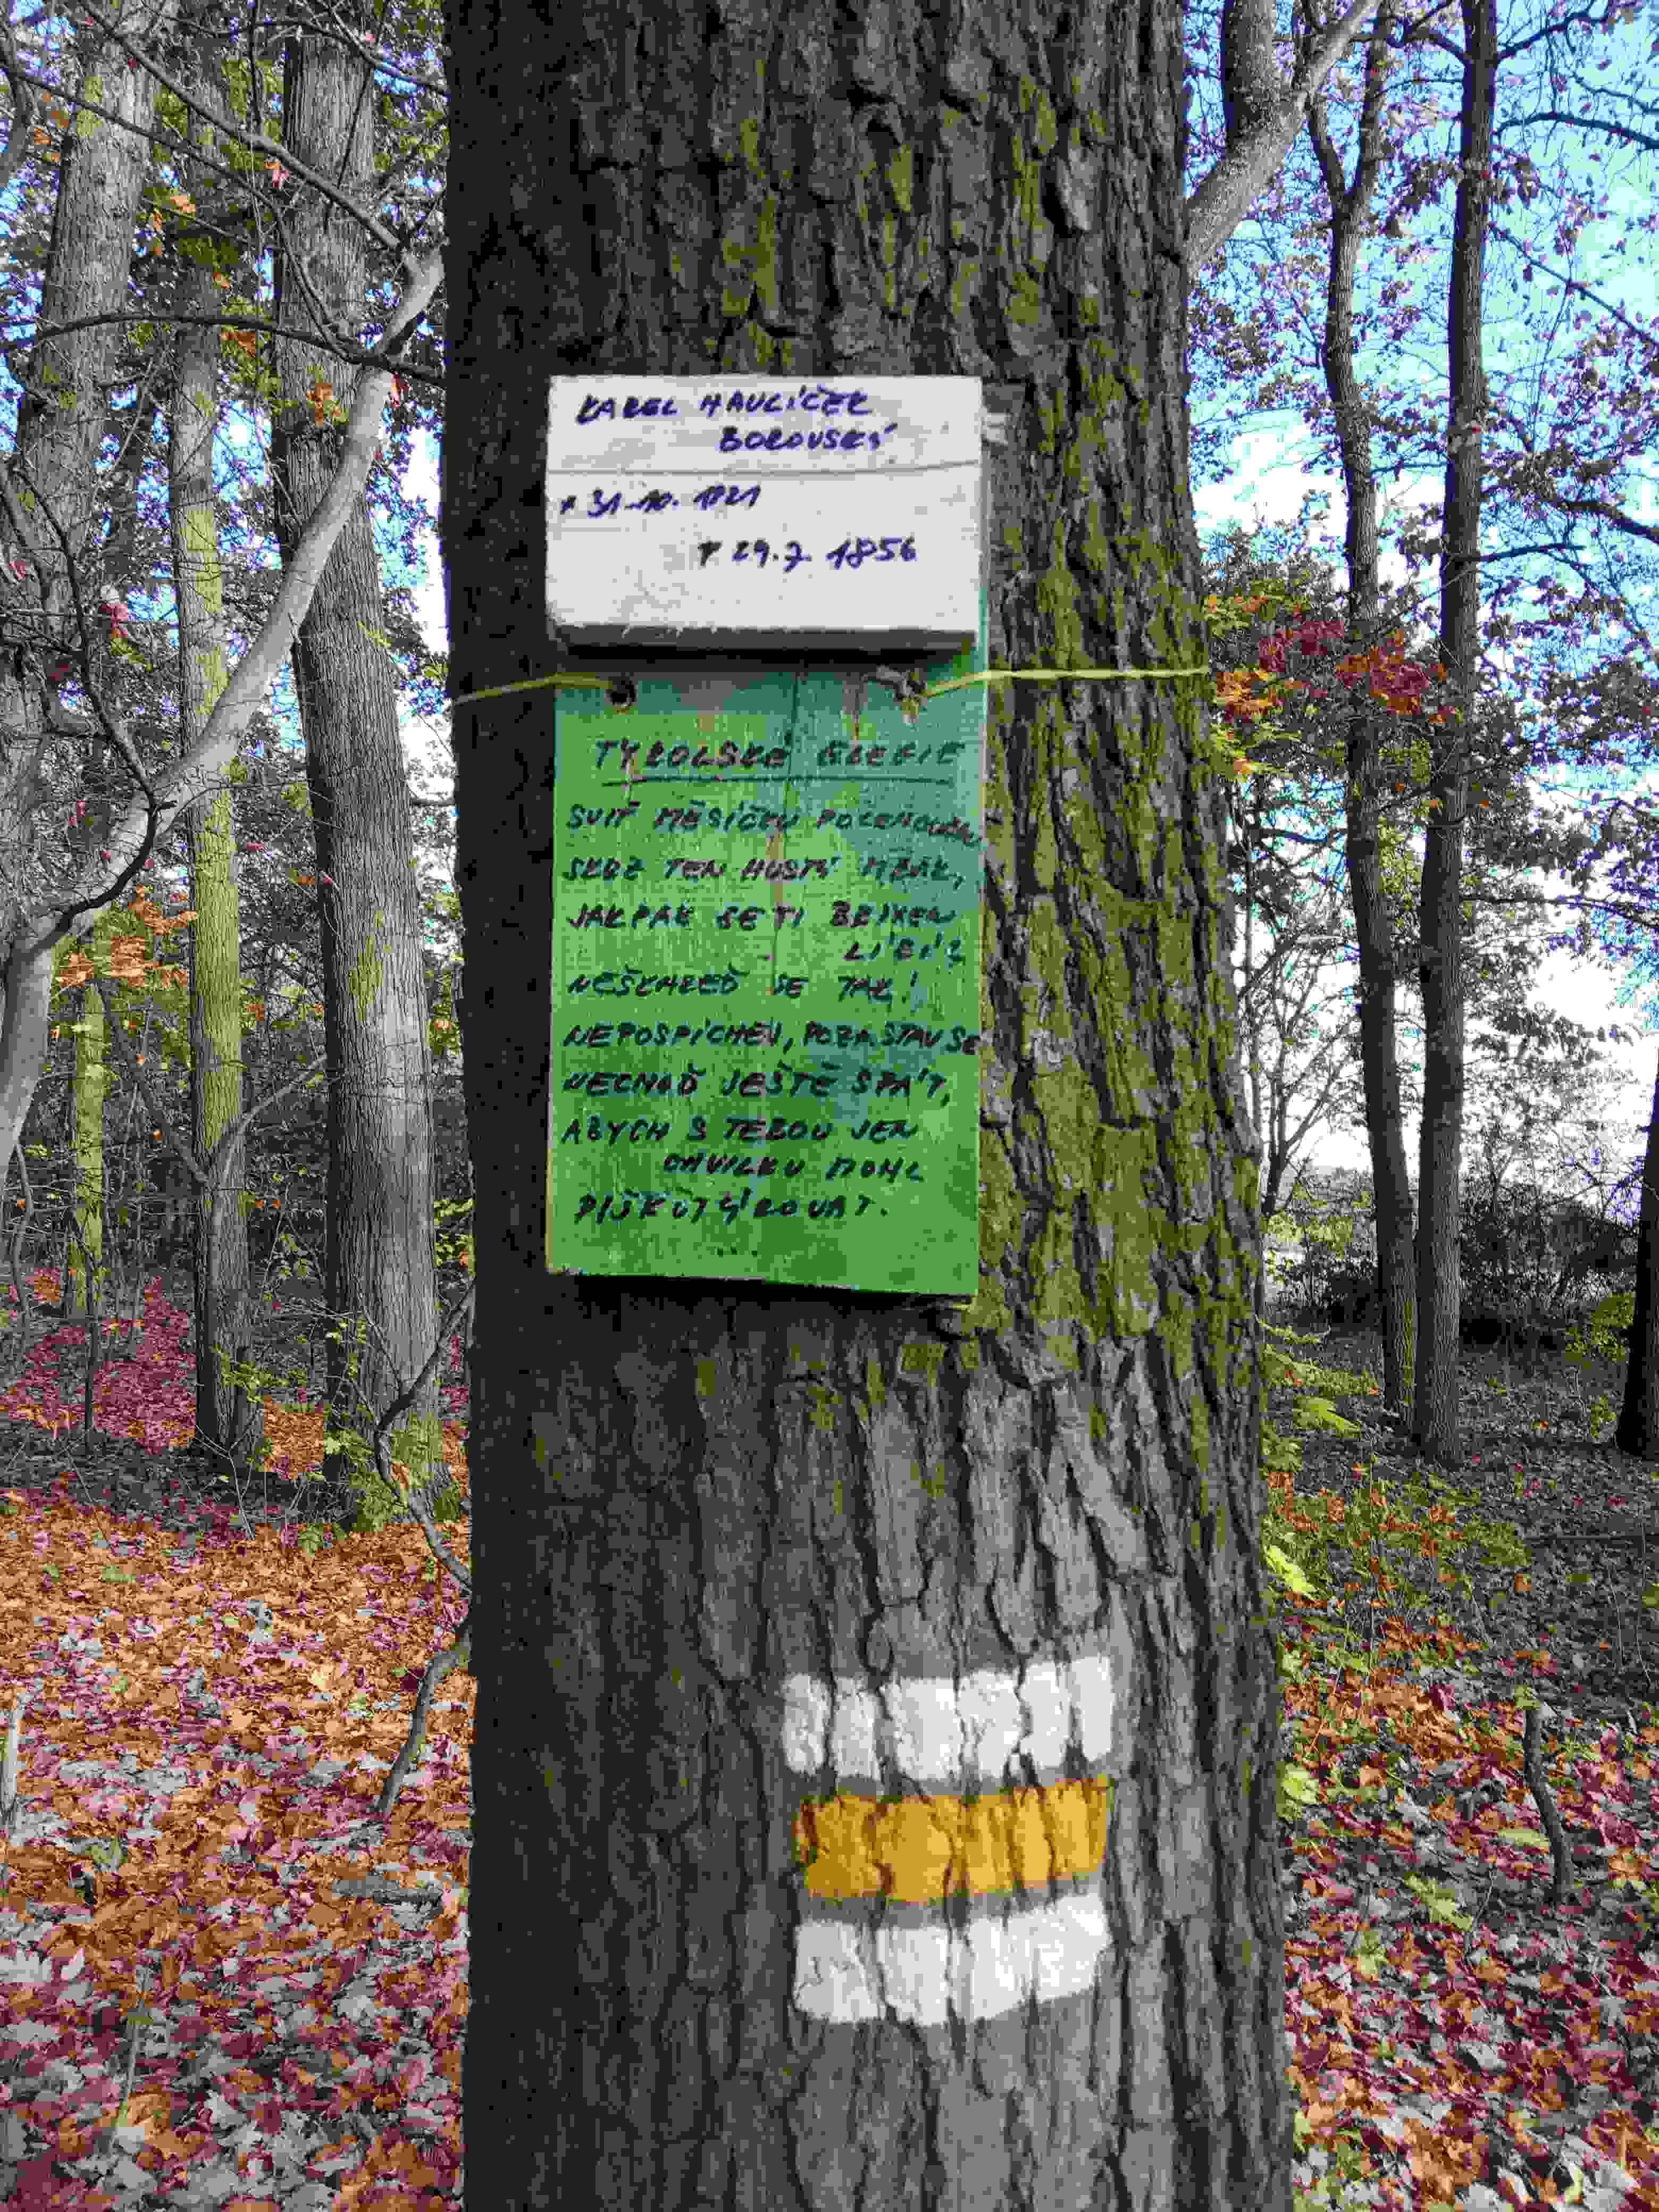 KAREL HAVLÍČEK
BOROVSKÝ
* 31.10. 1821
† 29.7 1856
TYROLSKÉ ELEGIE
SVIŤ MĚSÍČKU POLEHOUČKU
SKRZ TEN HUSTÝ MRAK,
JAKPAK SE TI BRIXEN
LÍBÍ?
NEŠKAREĎ SE TAK!
NEPOSPÍCHEJ, POZASTAV SE
NECHOĎ JEŠTĚ SPÁT,
ABYCH S TEBOU JEN
CHVILKU MOHL
DIŠKUTÝROVAT.
...